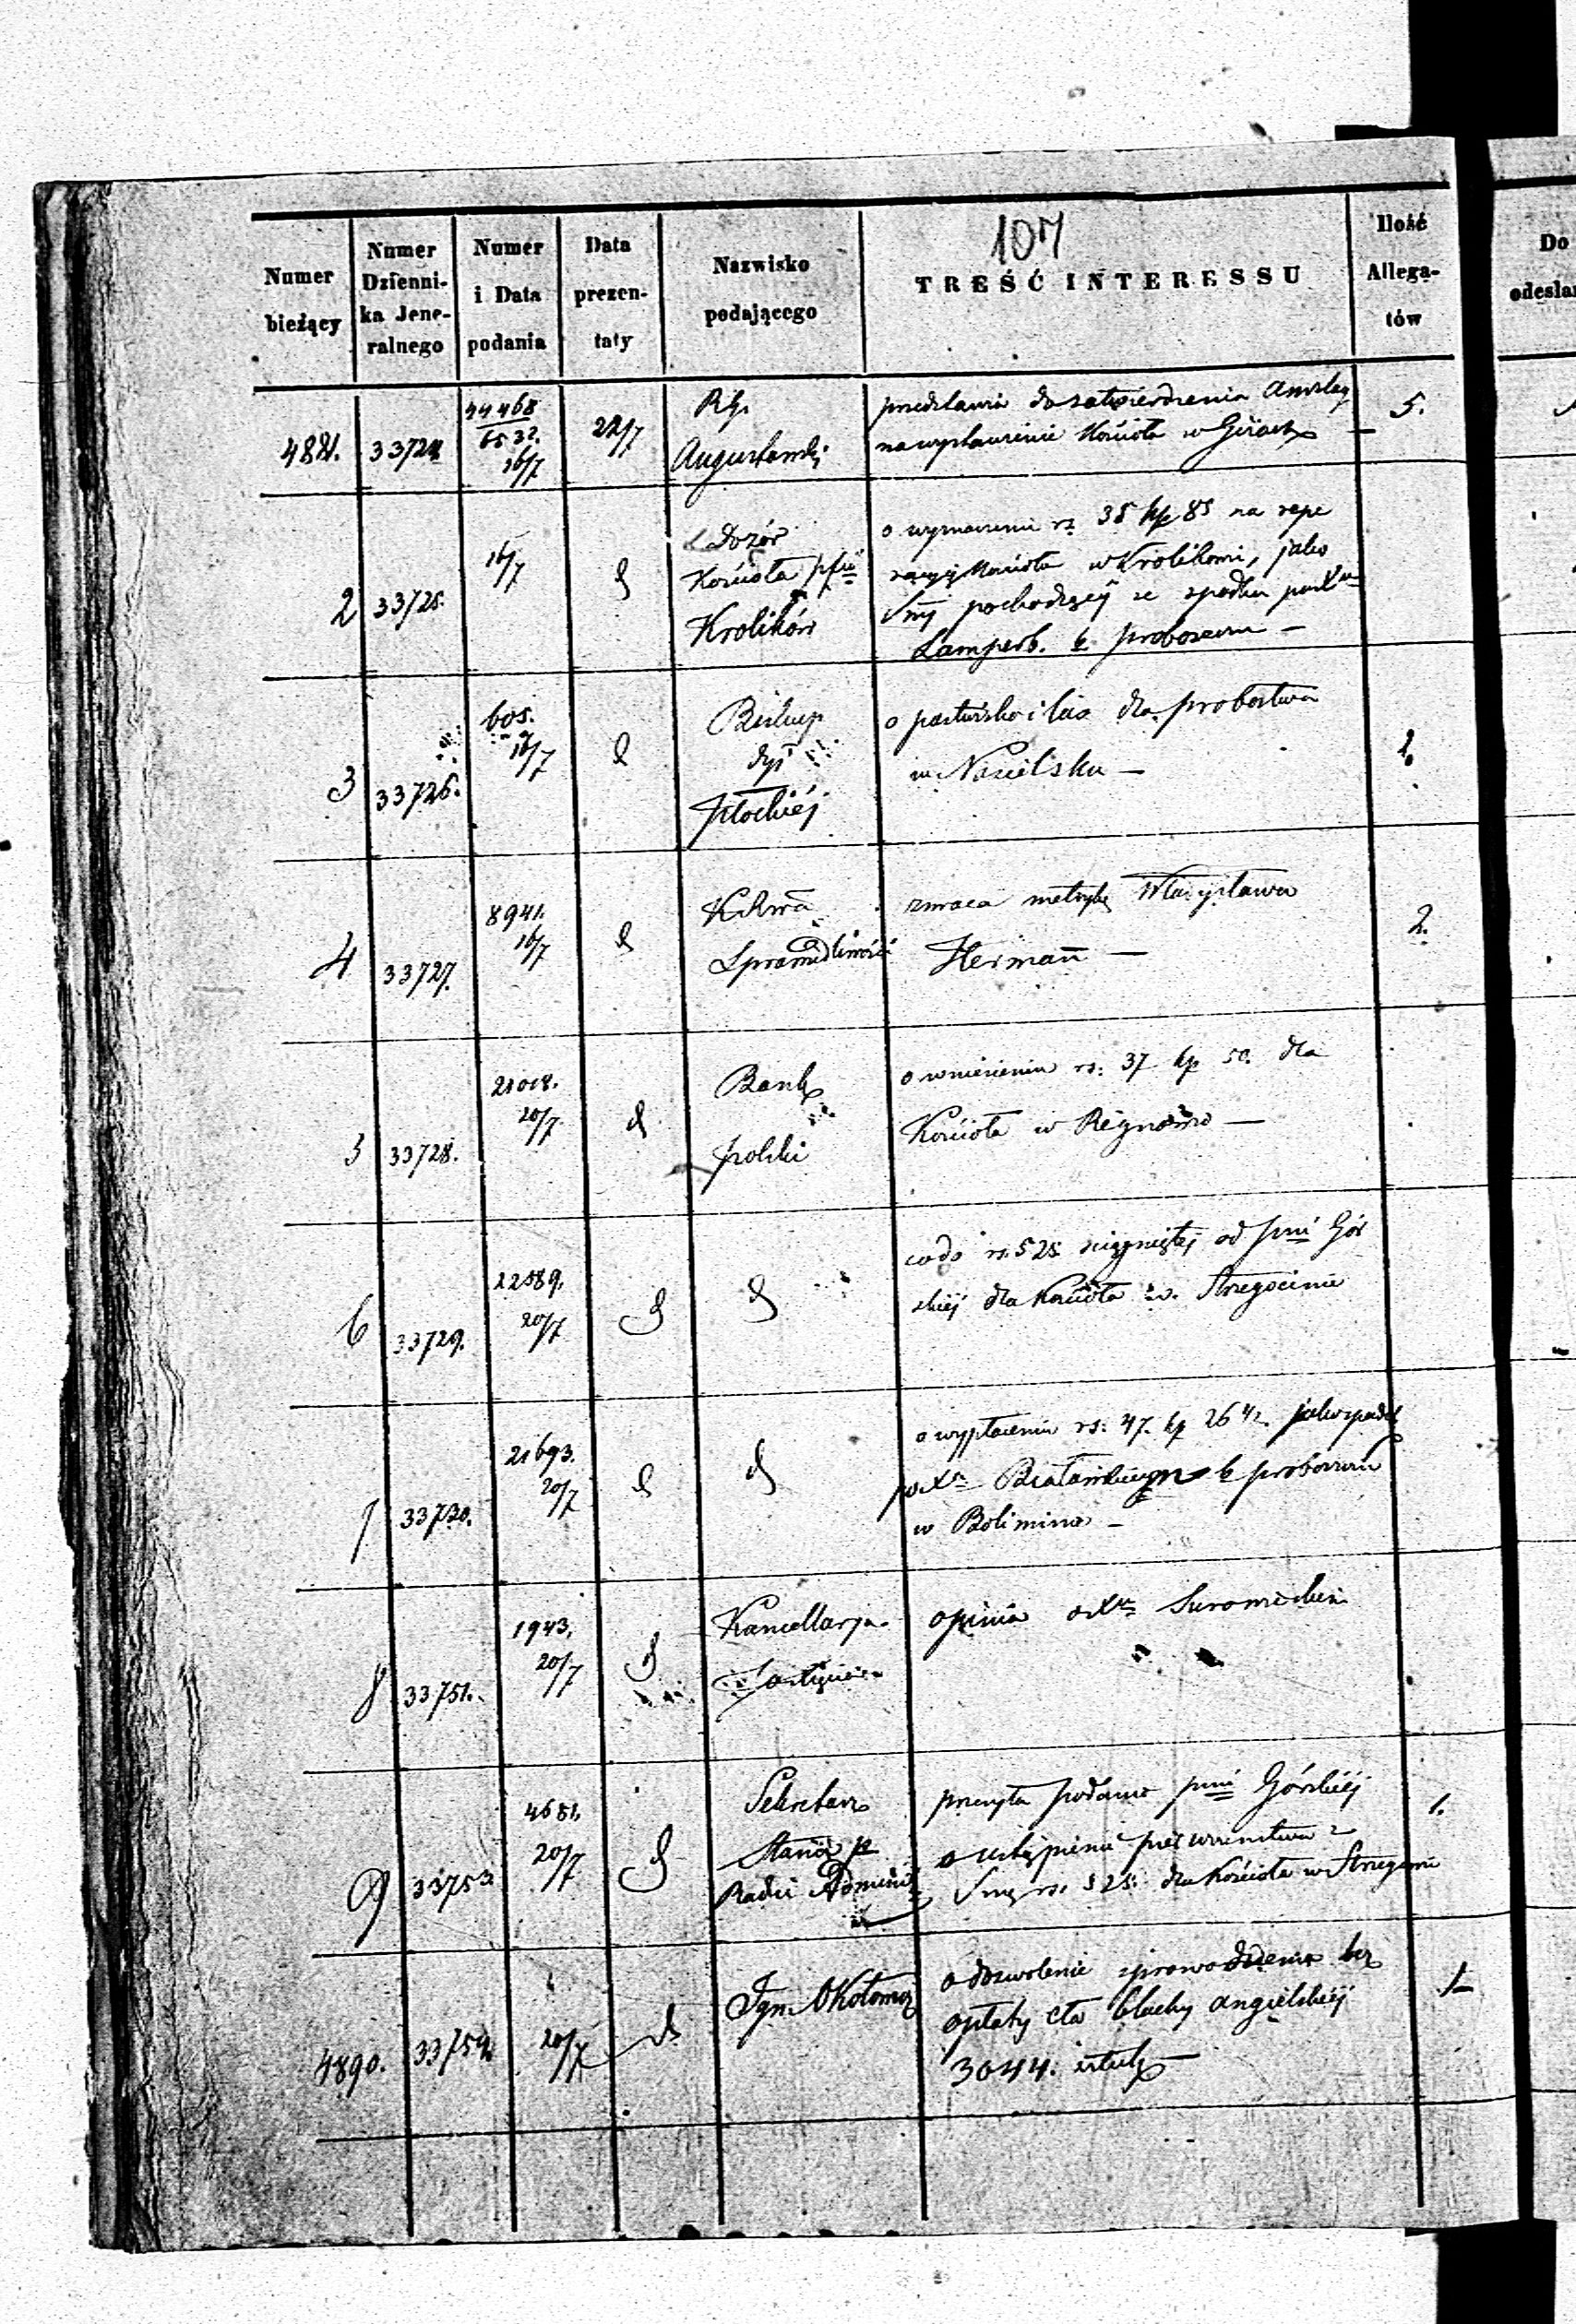 107
Numer bieżący
Numer Dzienni-ka Jene-ralnego
Numer i Data podania
Data prezen-taty
Nazwisko podającego
TREŚĆ INTERESSU
Ilość Allega-tów
Do
odesłan
4881. 33724 44468
6532. 16/7 22/7
Rg.
Augustowski
przedstawia do zatwierdzenia Anszlag
na wystawienie Kościoła w 5.
2 33725. 16/7
Dozór
Kościoła pfii
Królików
o wyznaczenie rs 35 kp 85 na repe
racyją Kościoła w Królikowie, jako
pochodzącej ze spadku po Xu
Lampert. b. proboszczu —
3 33726. 605.
16/7
Biskup
dyi
Płockiéj
o pastwisko i las dla probostwa
w Nasielsku — 1.
4 33727. 8941.
16/7
KRwa
Sprawiedliwości
zwraca metrykę Władysława
Herman — 2.
5 33728. 21018.
20/7
Bank
polski
o wniesieniu rs: 37 kp 50. dla
Kościoła w Regnowie —
6 33729. 22589.
20/7
co do rs. 525 ściągniętej od pni Gór
skiej dla Kościoła w. Strzegocinie
7 33730. 21693.
20/7
o wypłaceniu rs: 47. kp 26 1/2. jako spadek
po Xu b proboszczu
w Bolimowie —
8 33751. 1943.
20/7
Kancellarja
opinia o Xu
9 33753 4651.
20/7
Sekretarz
Stanu p
Radzie Administ
przesyła podanie pni Górskiéj
o ustąpienie pierwszeństwa z
rs. 525. dla Kościoła w 1.
4890. 33754 20/7
Ign.
o dozwolenie sprowadzenia bez
opłaty cła blachy angielskiéj
3044. sztuk — 1